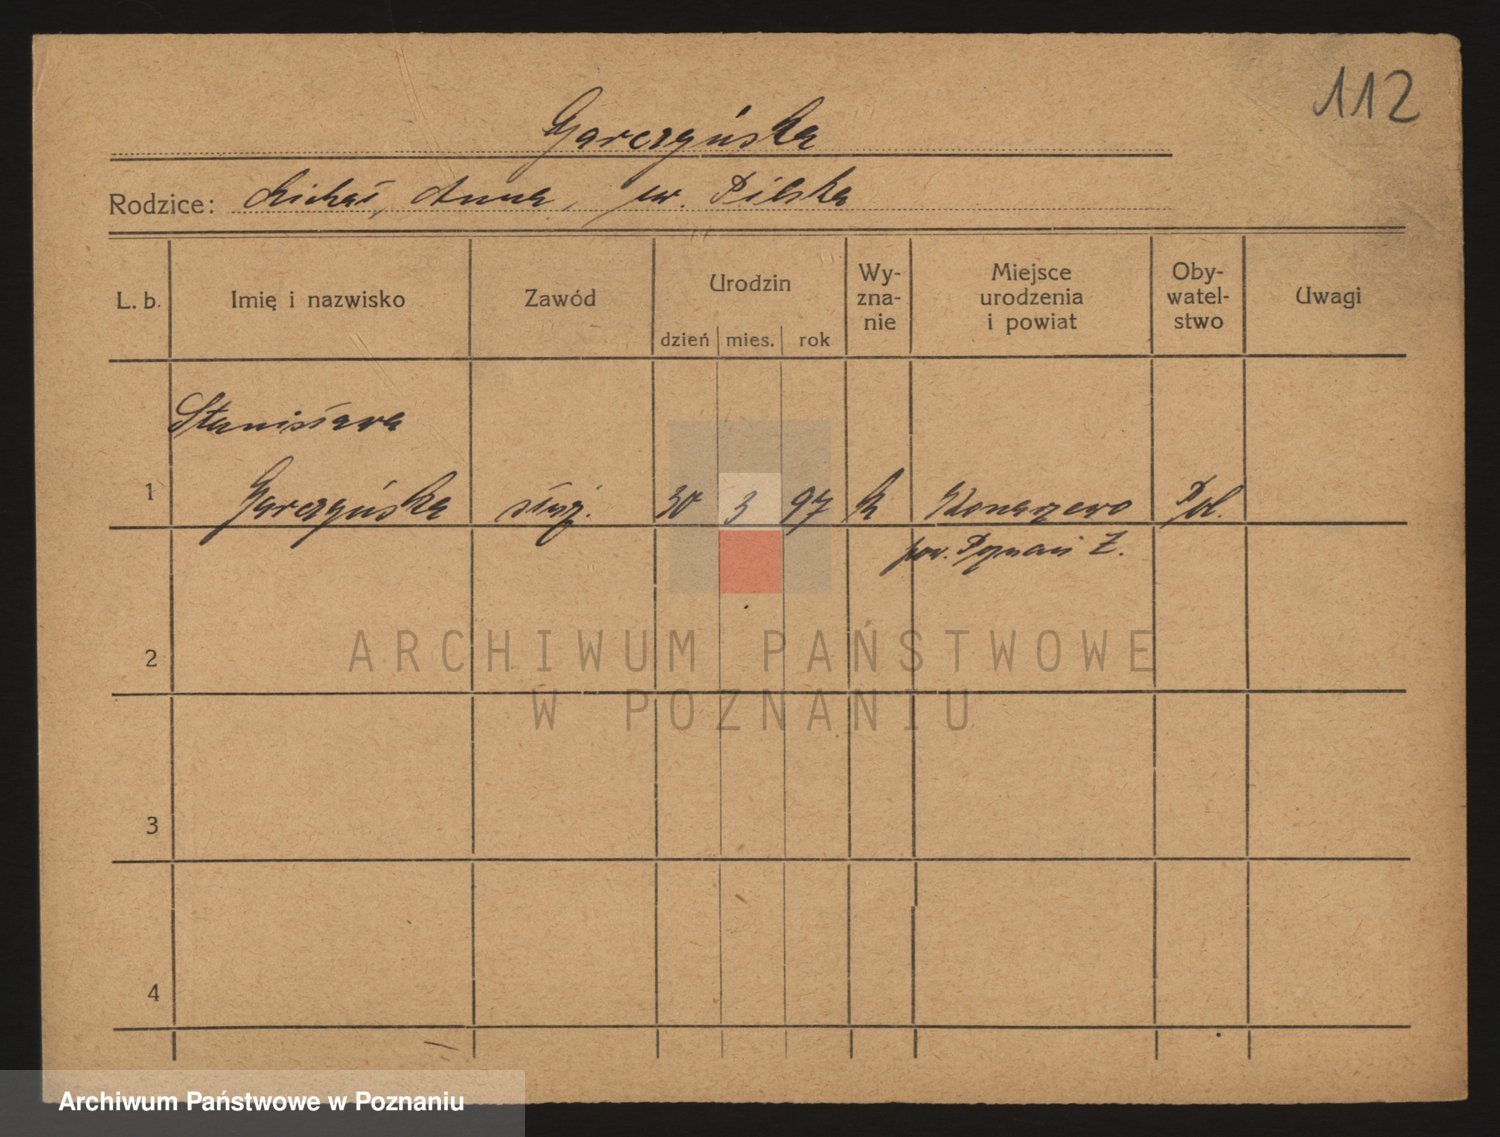 112
Garczyńska
Rodzice: Michał, Anna, ur. Pilska
L. b. Imię i nazwisko Zawód Urodzin dzień mies. rok Wy-zna-nie Miejsce urodzenia i powiat Oby-watel-stwo Uwagi
Stanisława
1 Garczyńska służ. 30 3 97 k Konarzewo Pol.
pow. Poznań Z.
2
ARCHIWUM PAŃSTWOWE
W POZNANIU
3
4
Archiwum Państwowe w Poznaniu